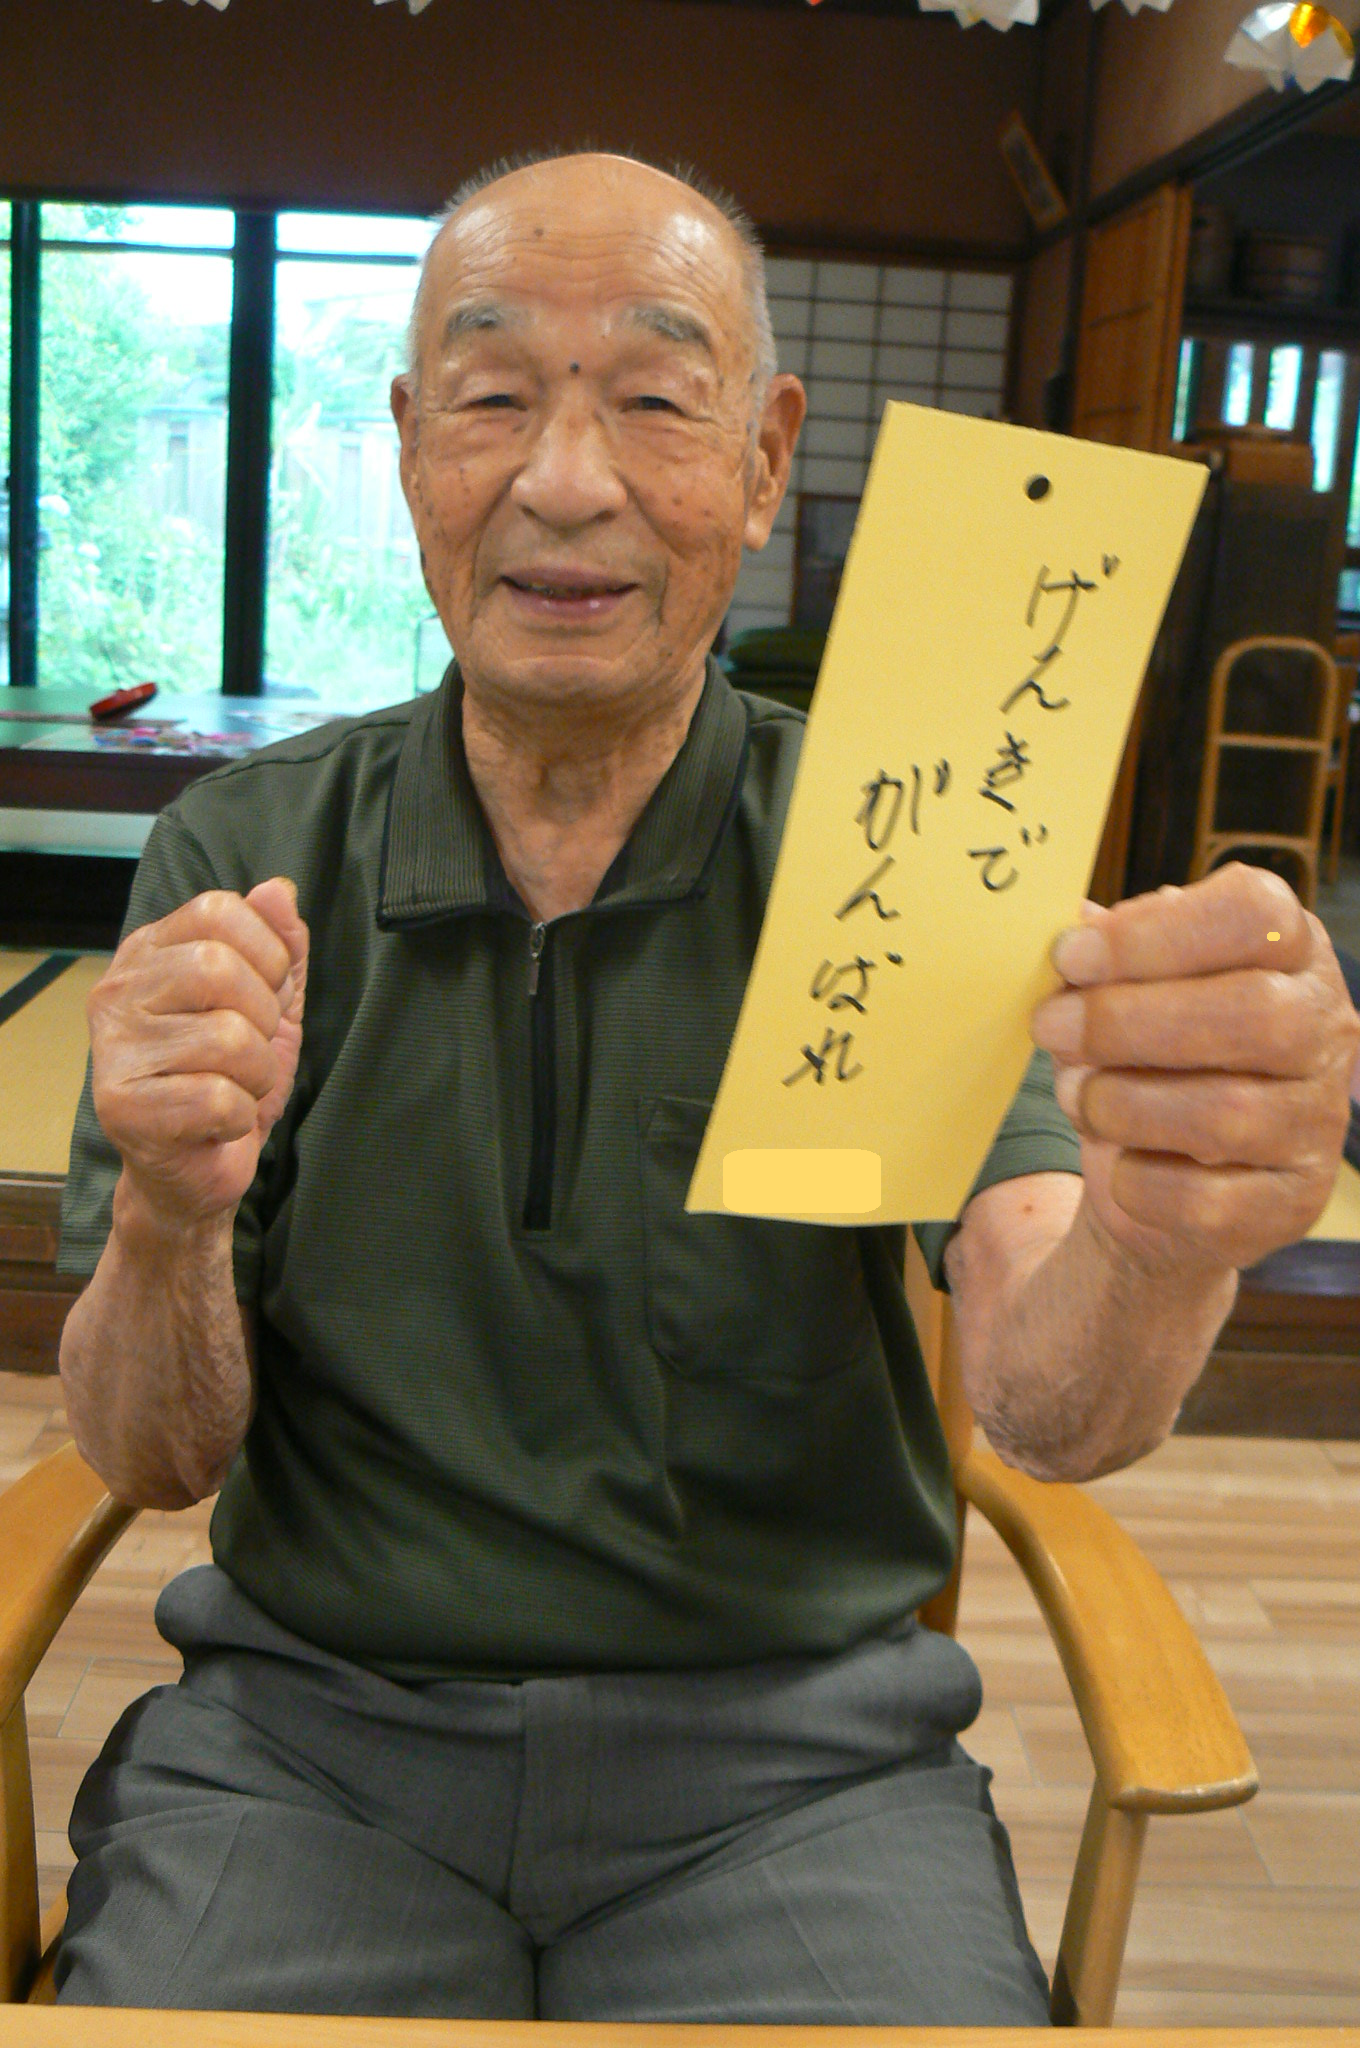 げんきで
がんばれ